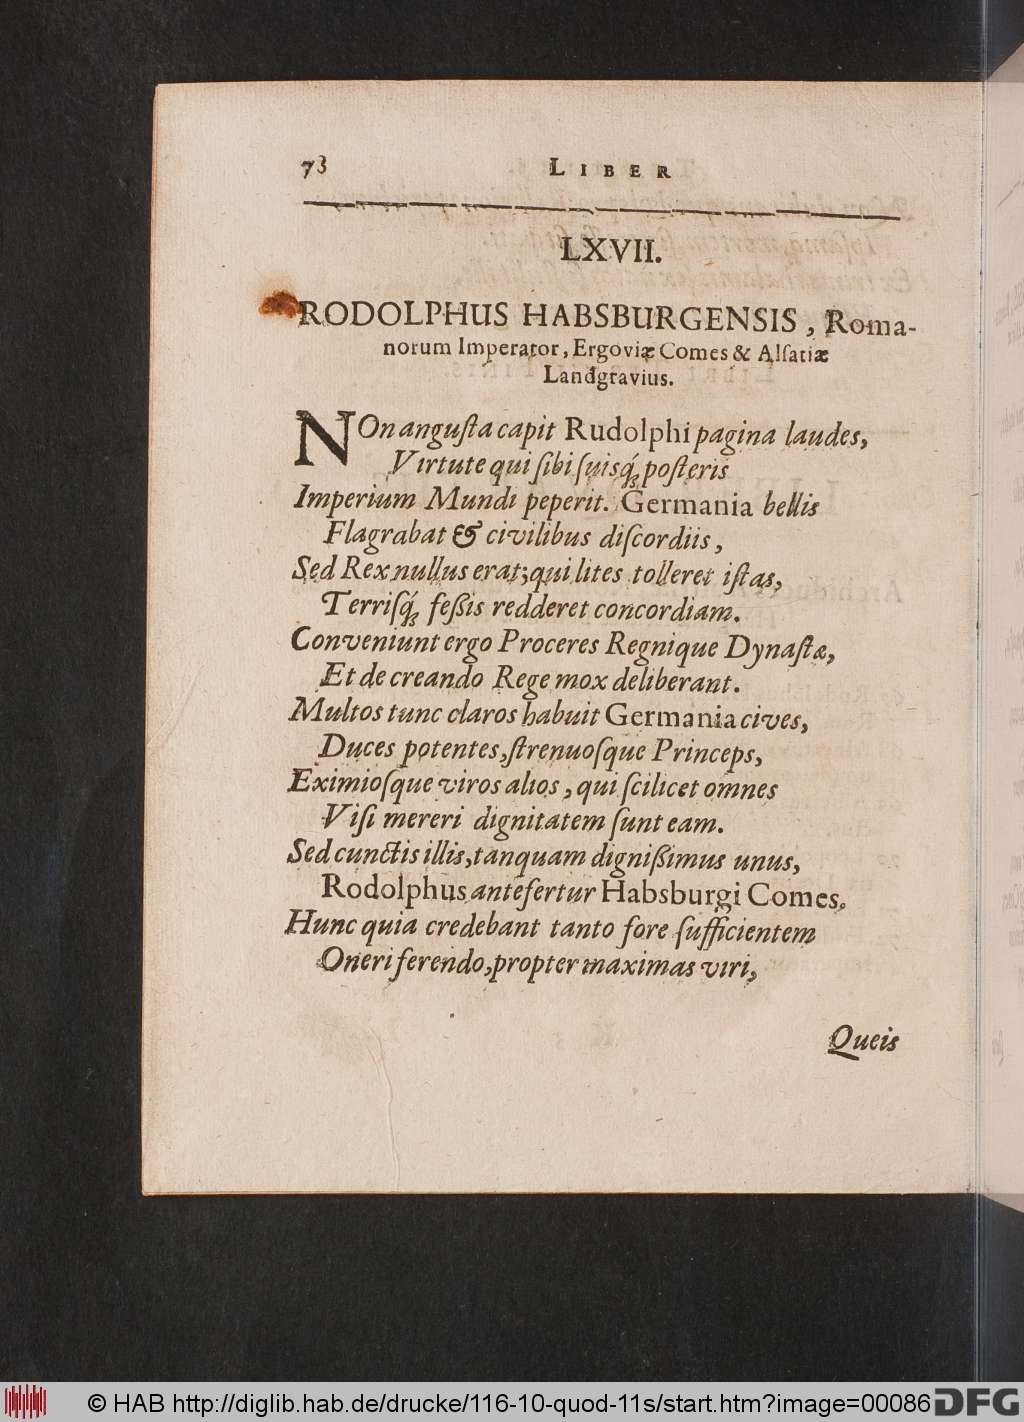 73 LIBER
LXVII.
RODOLPHUS HABSBURGENSIS, Roma-
norum Imperator, Ergoviæ Comes & Alsatiæ
Landgravius.
NOn angusta capit Rudolphi pagina laudes,
Virtute qui sibi suisq́; posteris
Imperium Mundi peperit. Germania bellis
Flagrabat & civilibus discordiis,
Sed Rex nullus erat; qui lites tolleret istas,
Terrisq́; feßis redderet concordiam.
Conveniunt ergo Proceres Regnique Dynastæ,
Et de creando Rege mox deliberant.
Multos tunc claros habuit Germania cives,
Duces potentes, strenuosque Princeps,
Eximiosque viros alios, qui scilicet omnes
Visi mereri dignitatem sunt eam.
Sed cunctis illis, tanquam dignißimus unus,
Rodolphus antefertur Habsburgi Comes.
Hunc quia credebant tanto fore sufficientem
Oneri ferendo, propter maximas viri,
Queis
© HAB http://diglib.hab.de/drucke/116-10-quod-11s/start.htm?image=00086 DFG